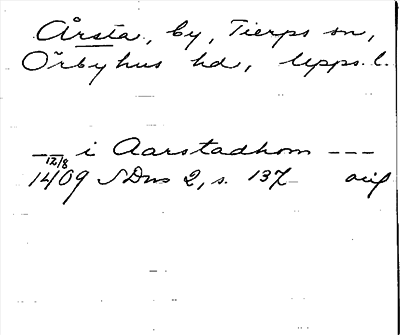 Årsta, by, Tierps sn,
Örbyhus hd, Upps. l.
— i Aarstadhom ---
12/8
1409 SDns 2, s. 137 orig